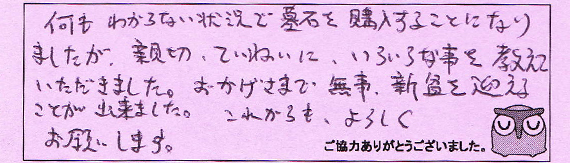 何も わからない状況で墓石を購入することになり
ましたが、親切、ていねいに、いろいろな事を教えて
いただきました。おかげさまで 無事、新盆を迎える
ことが出来ました。 これからも、よろしく
お願いします。
ご協力ありがとうございました。